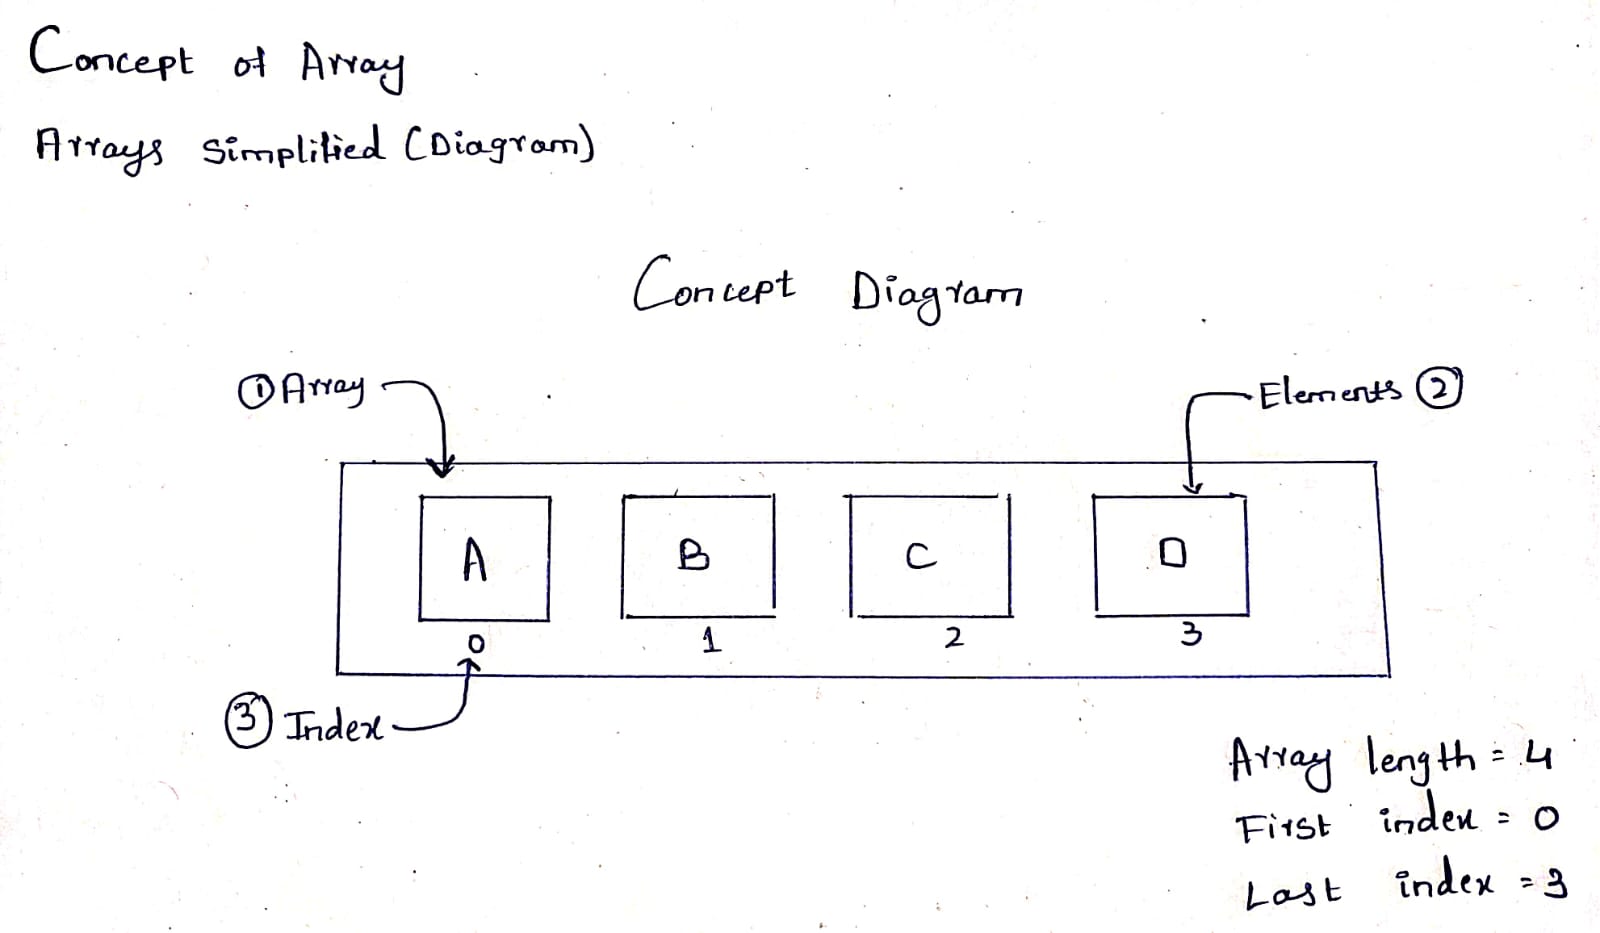 Concept of Array
Arrays Simplified (Diagram)
Concept Diagram
① Array
Elements ②
A
B
C
D
0
1
2
3
③ Index
Array length = 4
First index = 0
Last index = 3